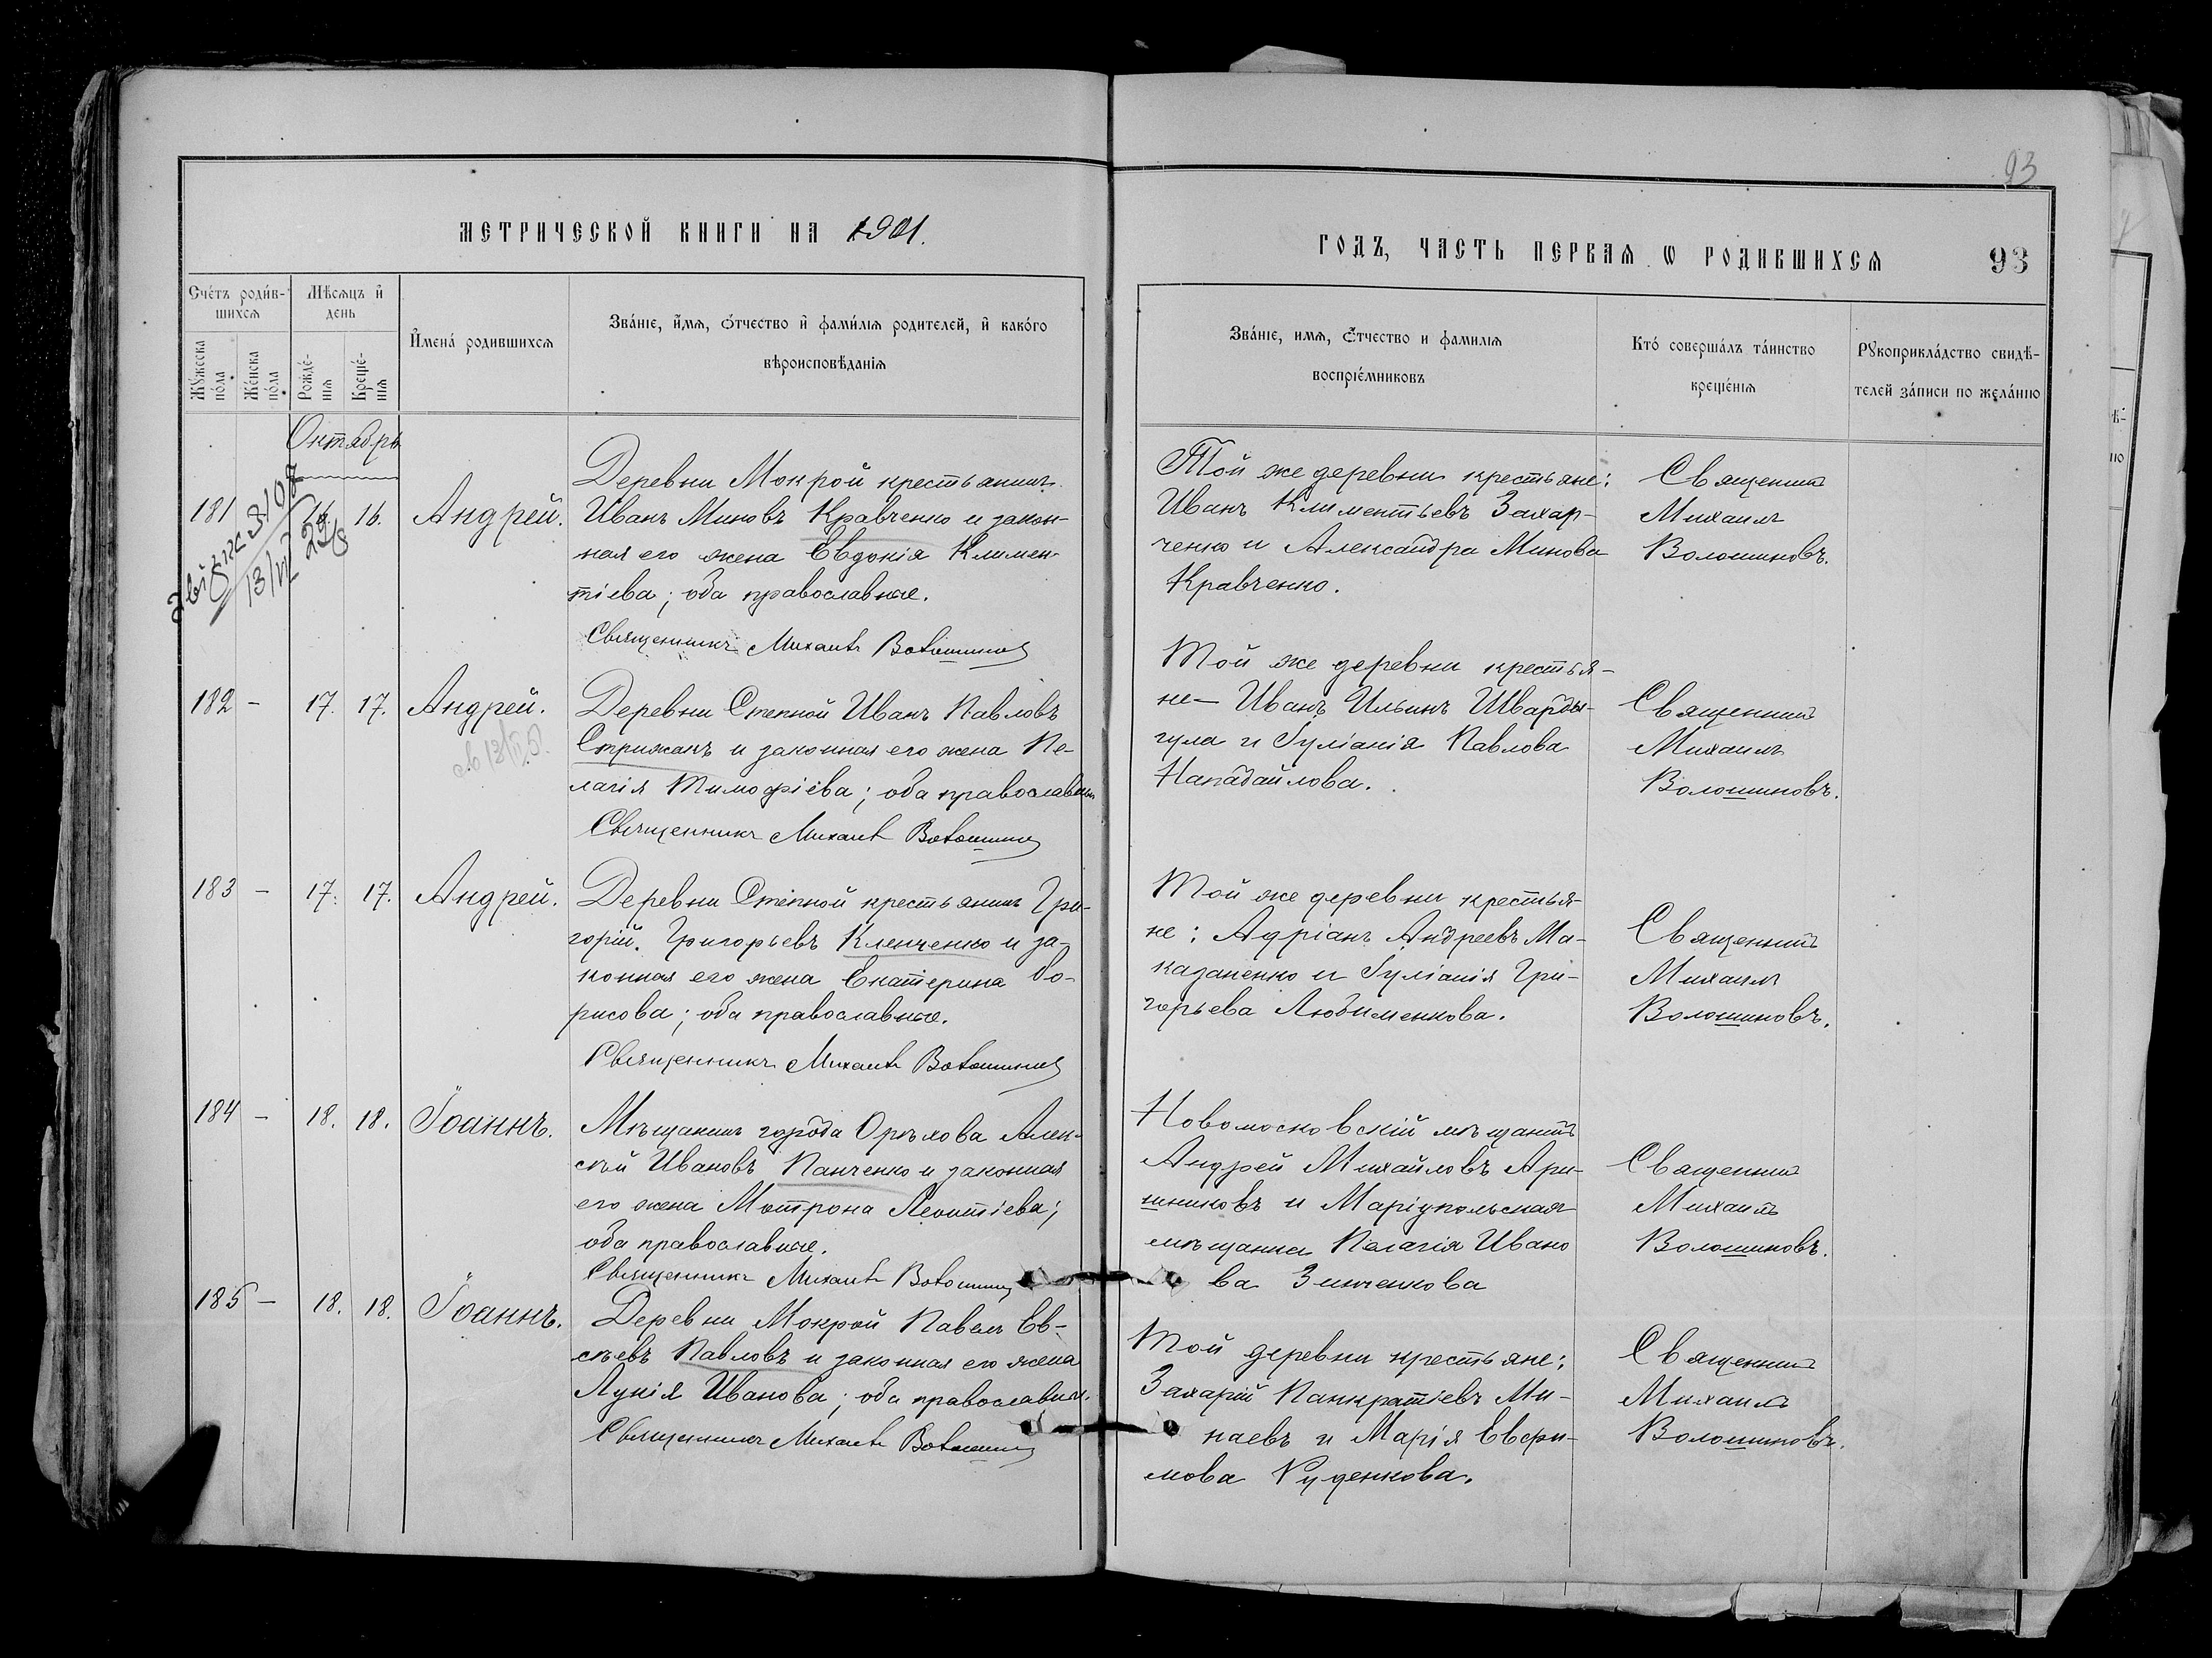 93
МЕТРИЧЕСКОЙ КНИГИ НА 1901.
ГОДЪ, ЧАСТЬ ПЕРВАѦ Ѡ РОДИВШИХСѦ 93
Счéтъ роди́в-
шихсѧ
Мѣсѧцъ и҆
день
Мꙋжеска
по́ла
Же́нска
по́ла
Рожде́-
нїѧ
Креще́-
нїѧ
И҆мена́ родившихсѧ
Зва́нїе, и҆́мѧ, ѻ҆́тчество и҆ фами́лїѧ родителей, и҆ како́го
вѣроисповѣданїѧ
Зва́нїе, имѧ, ѻ҆́тчество и фамилїѧ
воспрїе́мниковъ
Кто́ соверша́лъ та́инство
креще́нїѧ
Рꙋкоприкла́дство свидѣ-
телей за́писи по жела́нїю
Октябрь
181 16. Андрей.
Деревни Мокрой крестьянинъ
Иванъ Миновъ Кравченко и закон-
ная его жена Евдокія Климен-
тіева; оба православные.
Священникъ Михаилъ Волошиновъ
Той же деревни крестьяне:
Иванъ Климентьевъ Захар-
ченко и Александра Минова
Кравченко.
Священникъ
Михаилъ
Волошиновъ.
13/VI
182 - 17. 17. Андрей.
Деревни Степной Иванъ Павловъ
Стрижакъ и законная его жена Пе-
лагія Тимофіева; оба православные
Священникъ Михаилъ Волошиновъ
Той же деревни крестья-
не - Иванъ Ильинъ Шварды-
гула и Іуліанія Павлова
Нападайлова.
Священникъ
Михаилъ
Волошиновъ.
183 - 17. 17. Андрей.
Деревни Степной крестьянинъ Гри-
горій Григорьевъ Кленченко и за-
конная его жена Екатерина Бо-
рисова; оба православные.
Священникъ Михаилъ Волошиновъ
Той же деревни крестья-
не: Адріанъ Андреевъ Ма-
казаненко и Іуліанія Гри-
горьева Любименкова.
Священникъ
Михаилъ
Волошиновъ.
184 - 18. 18. Іоаннъ.
Мѣщанинъ города Орѣхова Алек-
сѣй Ивановъ Панченко и законная
его жена Мотрона Леонтіева;
оба православные.
Священникъ Михаилъ Волошиновъ
Новомосковскій мѣщанинъ
Андрей Михайловъ Ари-
шниковъ и Маріупольская
мѣщанка Пелагія Ивано
ва Зинченкова
Священникъ
Михаилъ
Волошиновъ.
185 - 18. 18. Іоаннъ.
Деревни Мокрой Павелъ Ев-
сѣевъ Павловъ и законная его жена
Лукія Иванова; оба православные.
Священникъ Михаилъ Волошиновъ
Той деревни крестьяне:
Захарій Панкратіевъ Ми-
наевъ и Марія Евфи-
мова Руденкова.
Священникъ
Михаилъ
Волошиновъ.